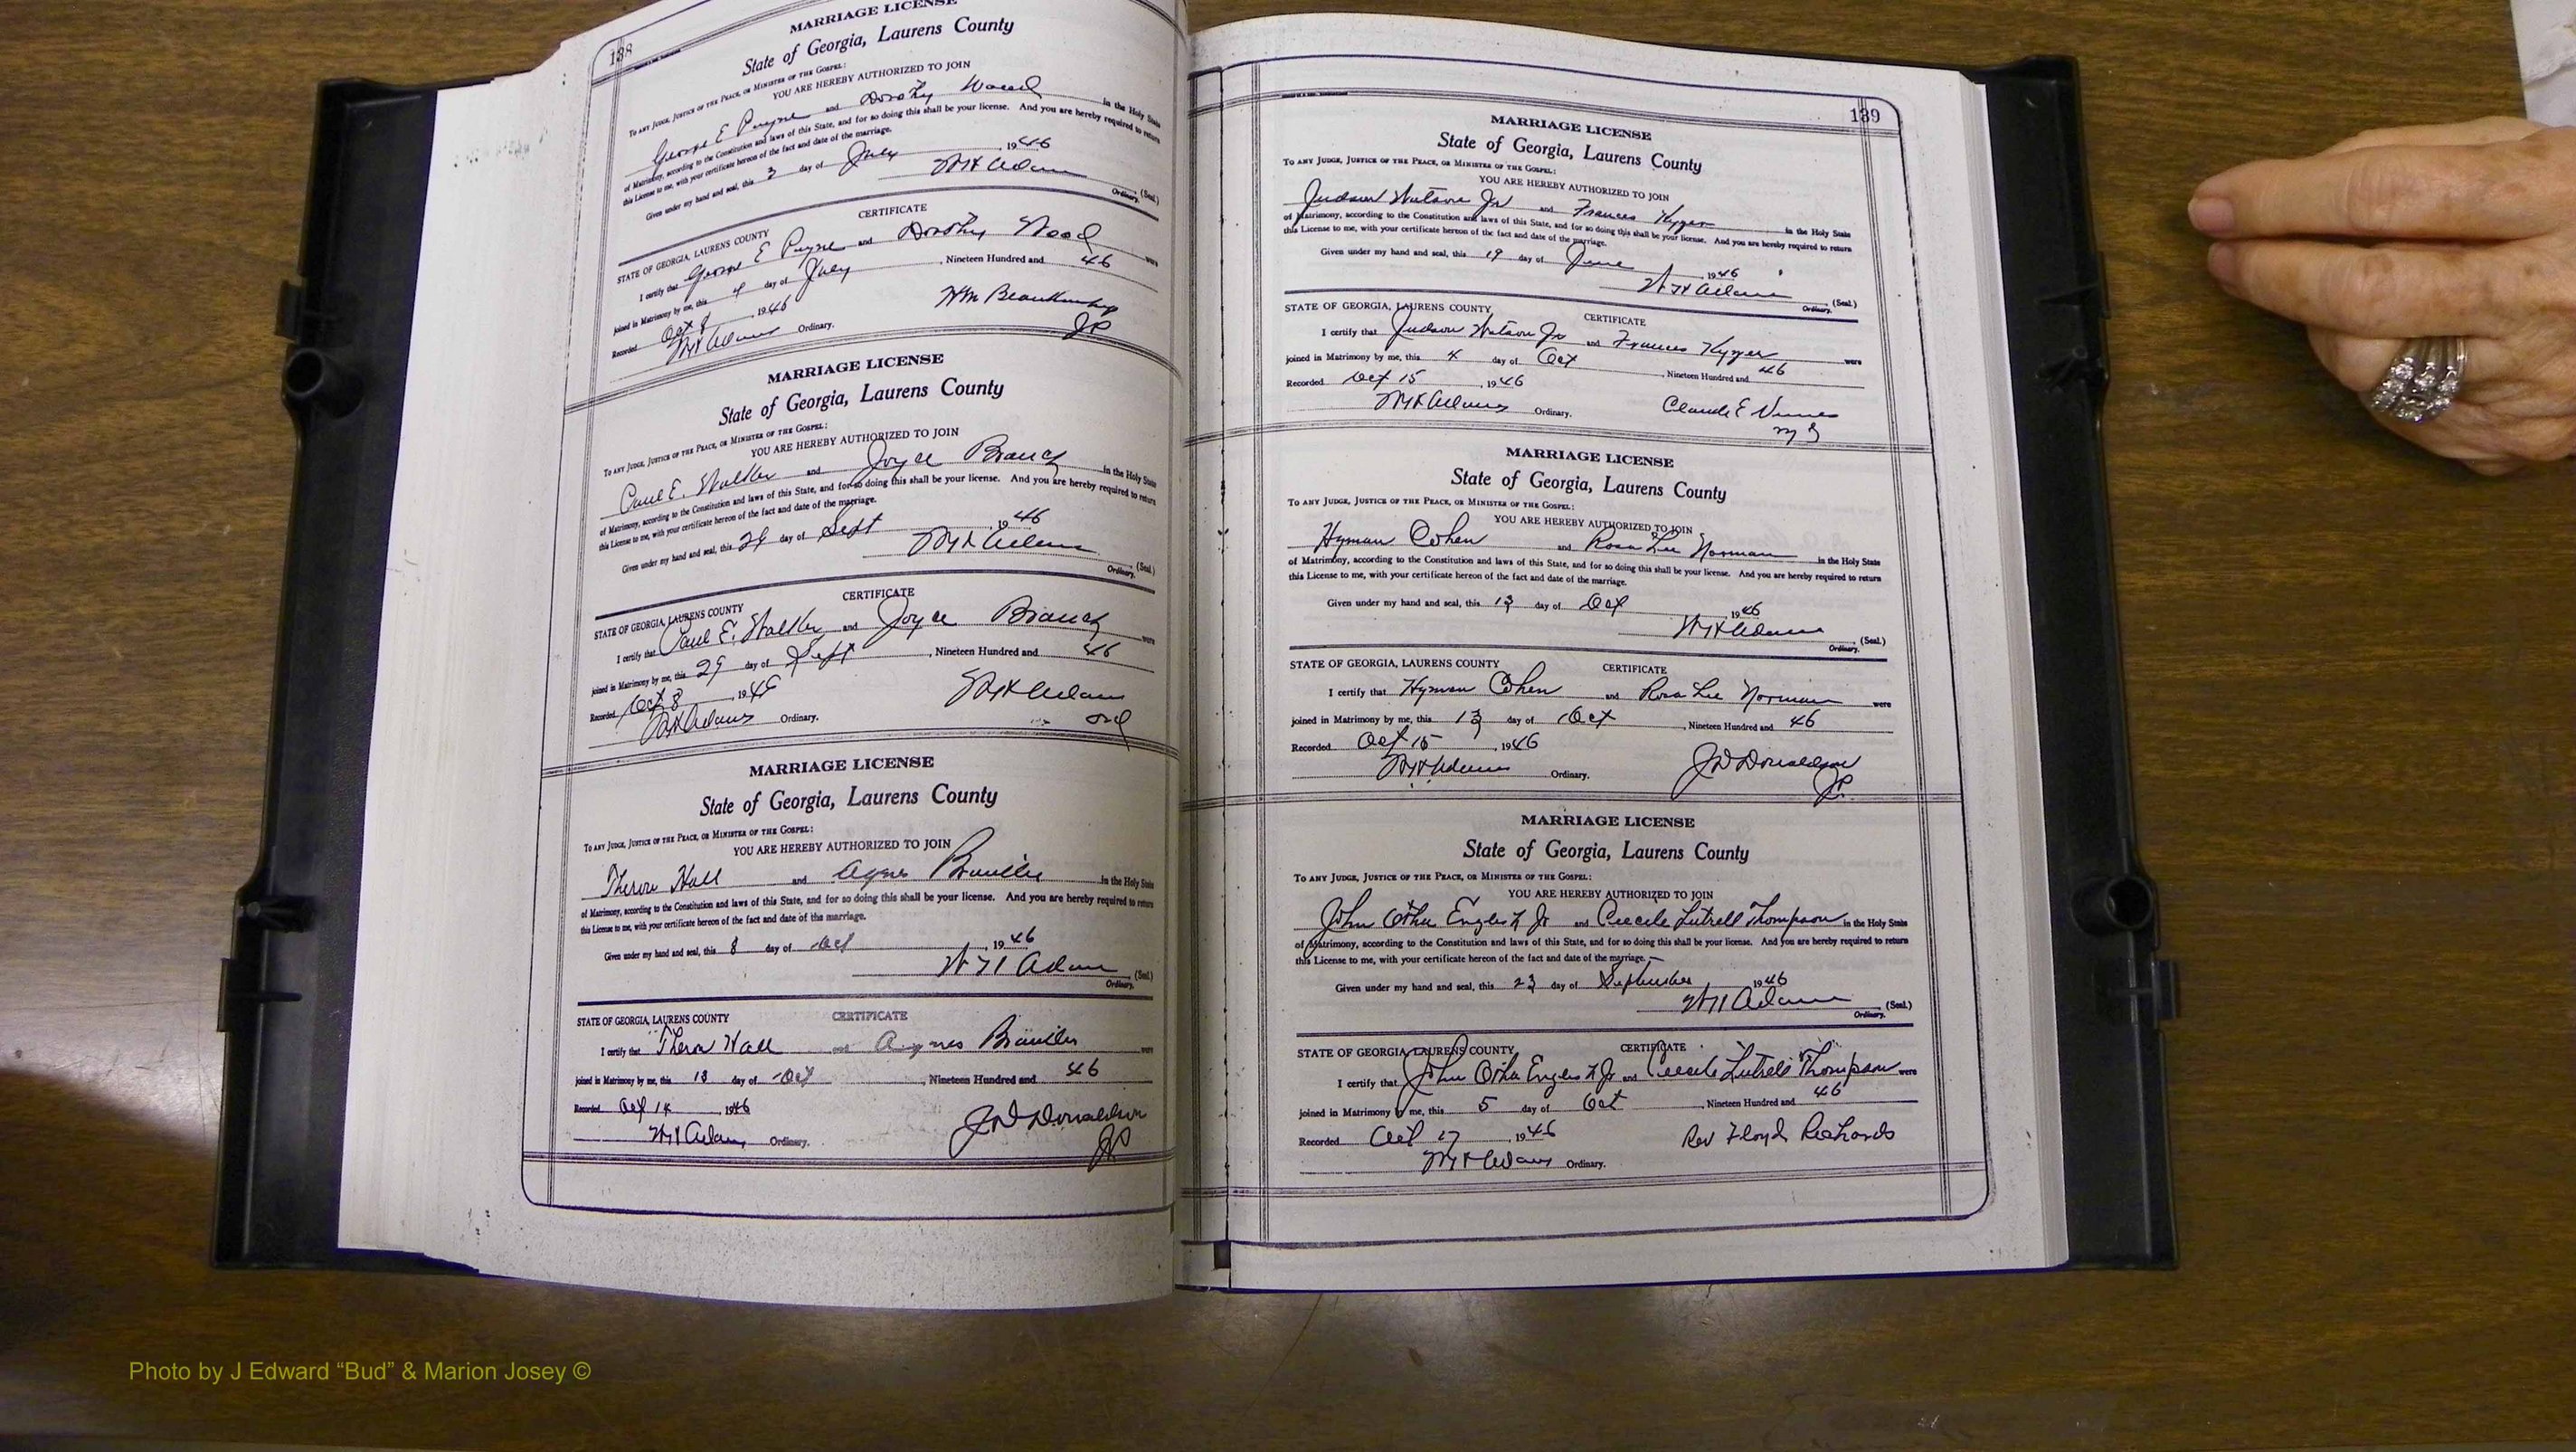 138
MARRIAGE LICENSE
State of Georgia, Laurens County
TO ANY JUDGE, JUSTICE OF THE PEACE, OR MINISTER OF THE GOSPEL:
YOU ARE HEREBY AUTHORIZED TO JOIN
George E Payne and Dorothy Wood in the Holy State
of Matrimony, according to the Constitution and laws of this State, and for so doing this shall be your license. And you are hereby required to return
this License to me, with your certificate hereon of the fact and date of the marriage.
Given under my hand and seal, this 3 day of July, 1946
WH Adams (Seal.)
Ordinary.
CERTIFICATE
STATE OF GEORGIA, LAURENS COUNTY
I certify that George E Payne and Dorothy Wood were
joined in Matrimony by me, this 4 day of July, Nineteen Hundred and 46
Recorded Oct 8, 1946 Wm
WH Adams Ordinary. JP
MARRIAGE LICENSE
State of Georgia, Laurens County
TO ANY JUDGE, JUSTICE OF THE PEACE, OR MINISTER OF THE GOSPEL:
YOU ARE HEREBY AUTHORIZED TO JOIN
Paul E. Walker and Joyce Branch in the Holy State
of Matrimony, according to the Constitution and laws of this State, and for so doing this shall be your license. And you are hereby required to return
this License to me, with your certificate hereon of the fact and date of the marriage.
Given under my hand and seal, this 29 day of Sept, 1946
WH Adams (Seal.)
Ordinary.
CERTIFICATE
STATE OF GEORGIA, LAURENS COUNTY
I certify that Paul E. Walker and Joyce Branch were
joined in Matrimony by me, this 29 day of Sept, Nineteen Hundred and 46
Recorded Oct 8, 1946 WH Adams
WH Adams Ordinary. Ord
MARRIAGE LICENSE
State of Georgia, Laurens County
TO ANY JUDGE, JUSTICE OF THE PEACE, OR MINISTER OF THE GOSPEL:
YOU ARE HEREBY AUTHORIZED TO JOIN
Theron Hall and Agnes in the Holy State
of Matrimony, according to the Constitution and laws of this State, and for so doing this shall be your license. And you are hereby required to return
this License to me, with your certificate hereon of the fact and date of the marriage.
Given under my hand and seal, this 8 day of Oct, 1946
WH Adams (Seal.)
Ordinary.
CERTIFICATE
STATE OF GEORGIA, LAURENS COUNTY
I certify that Theron Hall and Agnes were
joined in Matrimony by me, this 13 day of Oct, Nineteen Hundred and 46
Recorded Oct 14, 1946 JD Donaldson
WH Adams Ordinary. JP
139
MARRIAGE LICENSE
State of Georgia, Laurens County
TO ANY JUDGE, JUSTICE OF THE PEACE, OR MINISTER OF THE GOSPEL:
YOU ARE HEREBY AUTHORIZED TO JOIN
Judson Watson Jr and Frances Kyzer in the Holy State
of Matrimony, according to the Constitution and laws of this State, and for so doing this shall be your license. And you are hereby required to return
this License to me, with your certificate hereon of the fact and date of the marriage.
Given under my hand and seal, this 19 day of June, 1946
WH Adams (Seal.)
Ordinary.
STATE OF GEORGIA, LAURENS COUNTY CERTIFICATE
I certify that Judson Watson Jr and Frances Kyzer were
joined in Matrimony by me, this 4 day of Oct, Nineteen Hundred and 46
Recorded Oct 15, 1946
WH Adams Ordinary. Claude E
MG
MARRIAGE LICENSE
State of Georgia, Laurens County
TO ANY JUDGE, JUSTICE OF THE PEACE, OR MINISTER OF THE GOSPEL:
YOU ARE HEREBY AUTHORIZED TO JOIN
Hyman Cohen and Rosa Lee Norman in the Holy State
of Matrimony, according to the Constitution and laws of this State, and for so doing this shall be your license. And you are hereby required to return
this License to me, with your certificate hereon of the fact and date of the marriage.
Given under my hand and seal, this 13 day of Oct, 1946
WH Adams (Seal.)
Ordinary.
STATE OF GEORGIA, LAURENS COUNTY CERTIFICATE
I certify that Hyman Cohen and Rosa Lee Norman were
joined in Matrimony by me, this 13 day of Oct, Nineteen Hundred and 46
Recorded Oct 15, 1946 JD Donaldson
WH Adams Ordinary. JP.
MARRIAGE LICENSE
State of Georgia, Laurens County
TO ANY JUDGE, JUSTICE OF THE PEACE, OR MINISTER OF THE GOSPEL:
YOU ARE HEREBY AUTHORIZED TO JOIN
John Otha English Jr and Cecile Lutrell Thompson in the Holy State
of Matrimony, according to the Constitution and laws of this State, and for so doing this shall be your license. And you are hereby required to return
this License to me, with your certificate hereon of the fact and date of the marriage.
Given under my hand and seal, this 23 day of September 1946
WH Adams (Seal.)
Ordinary.
STATE OF GEORGIA, LAURENS COUNTY CERTIFICATE
I certify that John Otha English Jr and Cecile Lutrell Thompson were
joined in Matrimony by me, this 5 day of Oct, Nineteen Hundred and 46
Recorded Oct 17, 1946 Rev Floyd Richards
WH Adams Ordinary.
Photo by J Edward “Bud” & Marion Josey ©